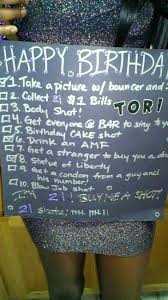 HAPPY BIRTHDA
1. Take a picture w/ bouncer and
2. Collect 21 $1 Bills
TORI
3. Body Shot!
4. Get everyone @ BAR to sing to you
5. Birthday CAKE shot
6. Drink an AMF
7. Get a stranger to buy you a
8. Statue of Liberty
9. Get a condom from a guy and
his number!
10. Blow Job shot
I'm 21! BUY ME A SHOT
21
Shots: